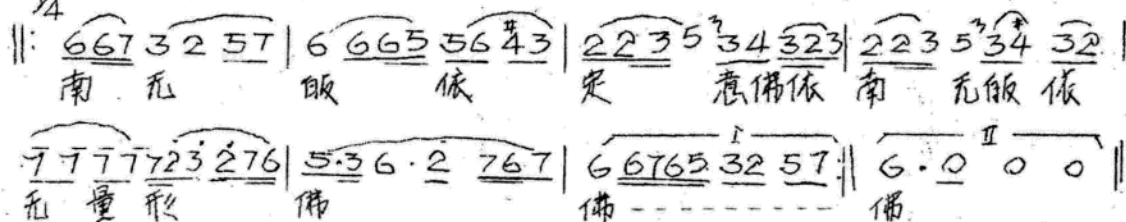 ¾
‖: 667 3 2 57 | 6 6665 56 #43 | 2235 34 323 | 223 5 34 32 |
南 无 皈 依 定 意佛依 南 无皈 依
7 7 7 7 723 276 | 5·3 6·2 767 | I 6 6765 32 57 :‖ II 6·0 0 0 ‖
无 量 形 佛 佛 - - - - - - - - - - - - 佛